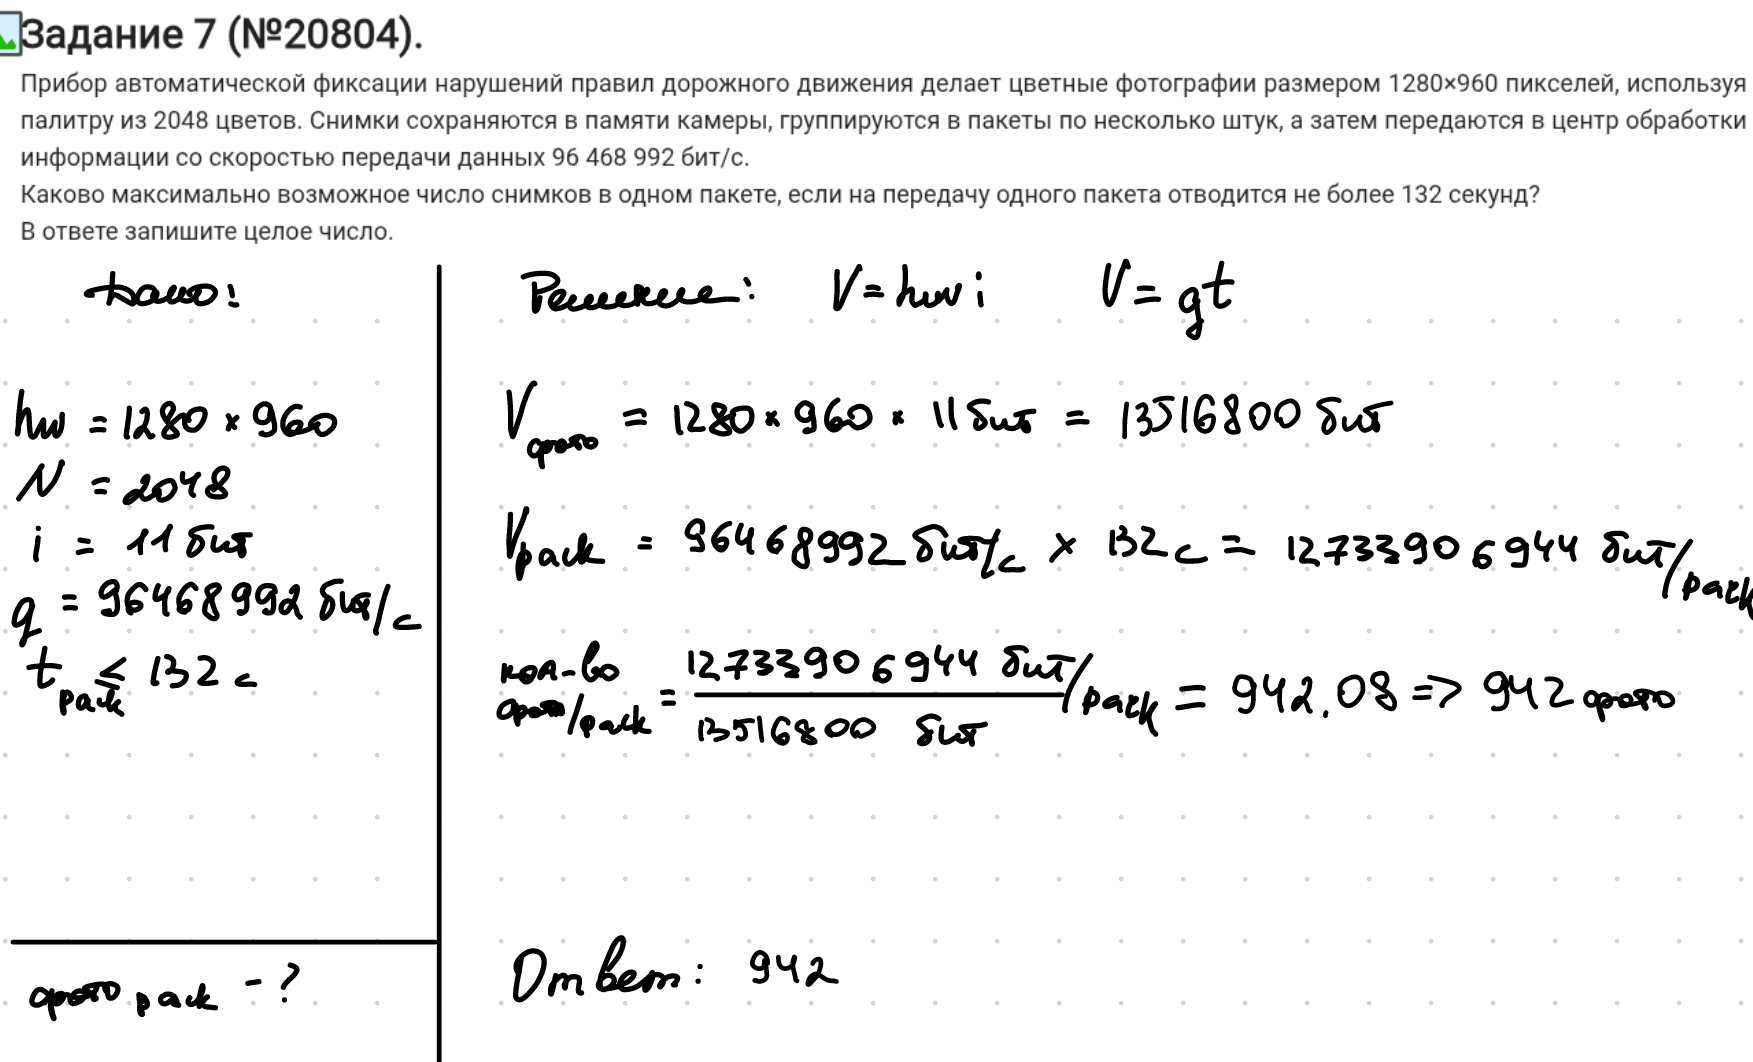 Задание 7 (№20804).
Прибор автоматической фиксации нарушений правил дорожного движения делает цветные фотографии размером 1280×960 пикселей, используя
палитру из 2048 цветов. Снимки сохраняются в памяти камеры, группируются в пакеты по несколько штук, а затем передаются в центр обработки
информации со скоростью передачи данных 96 468 992 бит/с.
Каково максимально возможное число снимков в одном пакете, если на передачу одного пакета отводится не более 132 секунд?
В ответе запишите целое число.
Дано:
hw = 1280 × 960
N = 2048
i = 11 бит
q = 96468992 бит/с
t pack ≤ 132 с
фото pack - ?
Решение: V = hw i V = qt
V фото = 1280 × 960 × 11 бит = 13516800 бит
V pack = 96468992 бит/с × 132 с = 12733906944 бит/pack
кол-во фото/pack = 12733906944 бит/pack / 13516800 бит = 942.08 => 942 фото
Ответ: 942